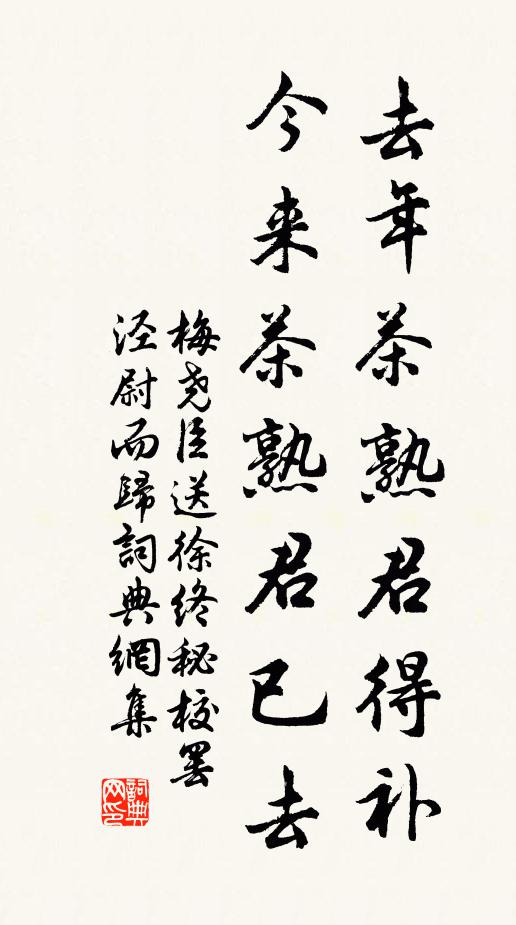 去年茶熟君得补
今来茶熟君已去
梅尧臣送徐终秘校罢
泾尉而歸詞典網集
詞典网印